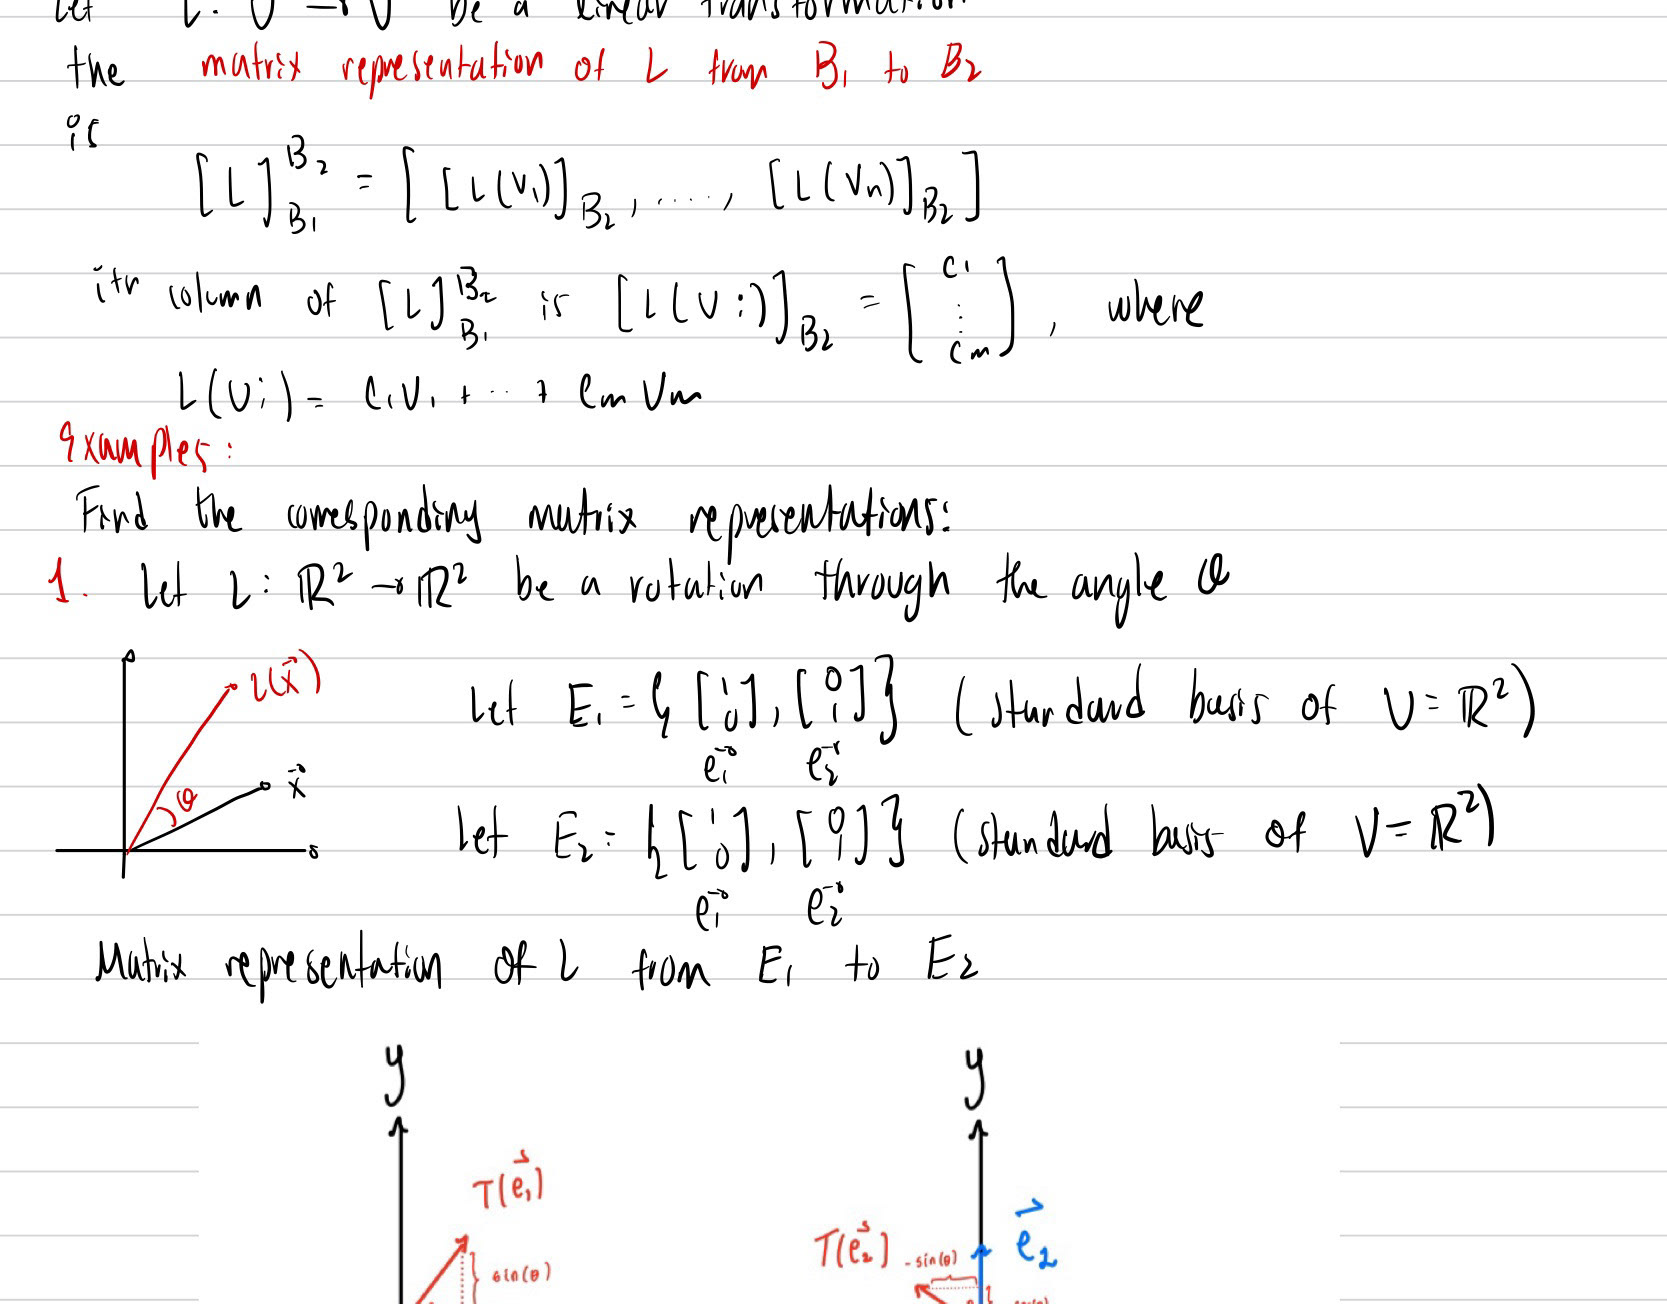 Let L: U → V be a linear transformation
the matrix representation of L from B₁ to B₂
is
[L]_{B₁}^{B₂} = [ [L(v₁)]_{B₂}, ...., [L(vₙ)]_{B₂} ]
ith column of [L]_{B₁}^{B₂} is [L(υi)]_{B₂} = [c₁ ⋮ cₘ], where
L(υi) = c₁v₁ + ... + cₘvₘ
Examples:
Find the corresponding matrix representations:
1. Let L: ℝ² → ℝ² be a rotation through the angle θ
L(x⃗)
θ
x⃗
Let E₁ = { [1 0], [0 1] } (standard basis of U = ℝ²)
e⃗₁ e⃗₂
Let E₂ = { [1 0], [0 1] } (standard basis of V = ℝ²)
e⃗₁ e⃗₂
Matrix representation of L from E₁ to E₂
y y
T(e⃗₁)
sin(θ)
T(e⃗₂) -sin(θ) e⃗₂